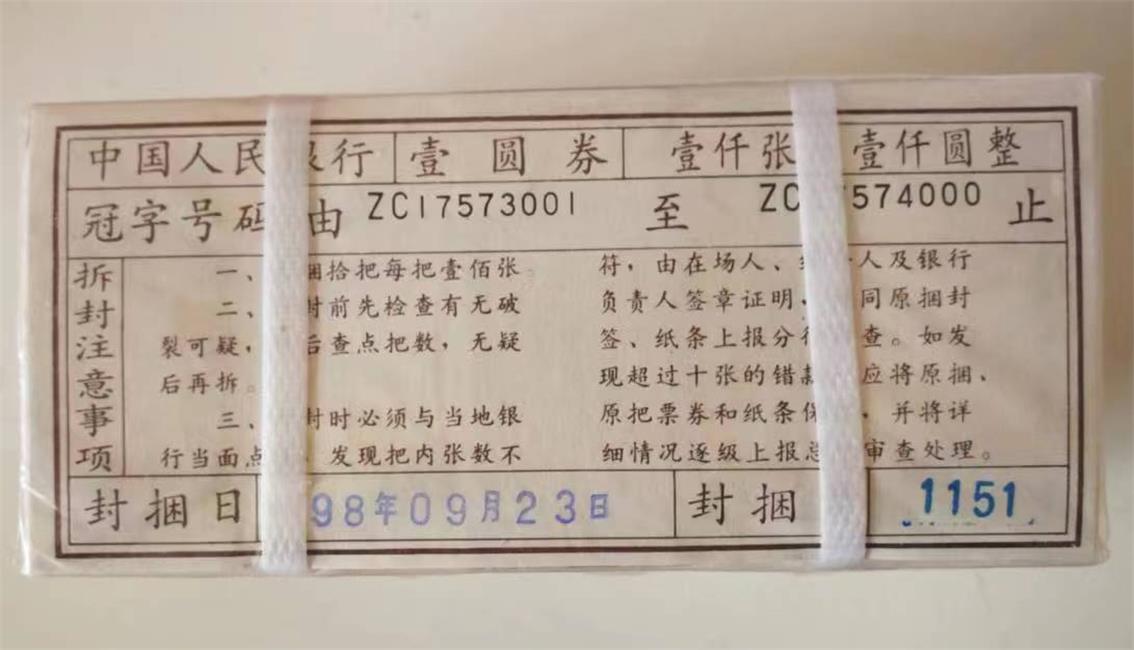 中国人民 银行 壹圆券 壹仟张 壹仟圆整
冠字号码 由 ZC17573001 至 ZC 574000 止
拆封注意事项
一、 捆拾把每把壹佰张。
二、 封前先检查有无破
裂可疑, 后查点把数,无疑
后再拆。
三、 封时必须与当地银
行当面点 发现把内张数不
符,由在场人、 人及银行
负责人签章证明, 同原捆封
签、纸条上报分行 查。如发
现超过十张的错款 应将原捆、
原把票券和纸条保 ,并将详
细情况逐级上报总 审查处理。
封捆日 98年09月23日 封捆 1151